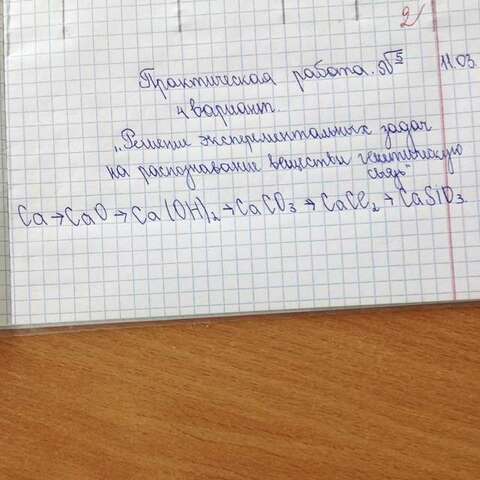 2
Практическая работа. №5 11.03.
4 вариант.
„Решение экспериментальных задач
на распознавание веществ и генетическую
связь"
Ca→CaO→Ca(OH)₂→CaCO₃→CaCl₂→CaSiO₃